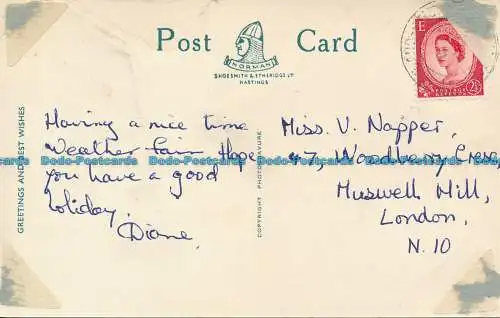 Post Card
NORMAN
SHOESMITH & ETHERIDGE LTD
HASTINGS
E R
POSTAGE REVENUE
2½D
GREETINGS AND BEST WISHES
COPYRIGHT PHOTOGRAVURE
Having a nice time
Weather fair Hope
you have a good
holiday.
Diane.
Miss. V. Napper,
47, Woodberry Cresc,
Muswell Hill,
London,
N.10
Dodo-Postcards Dodo-Postcards Dodo-Postcards Dodo-Postcards Dodo-Postcards